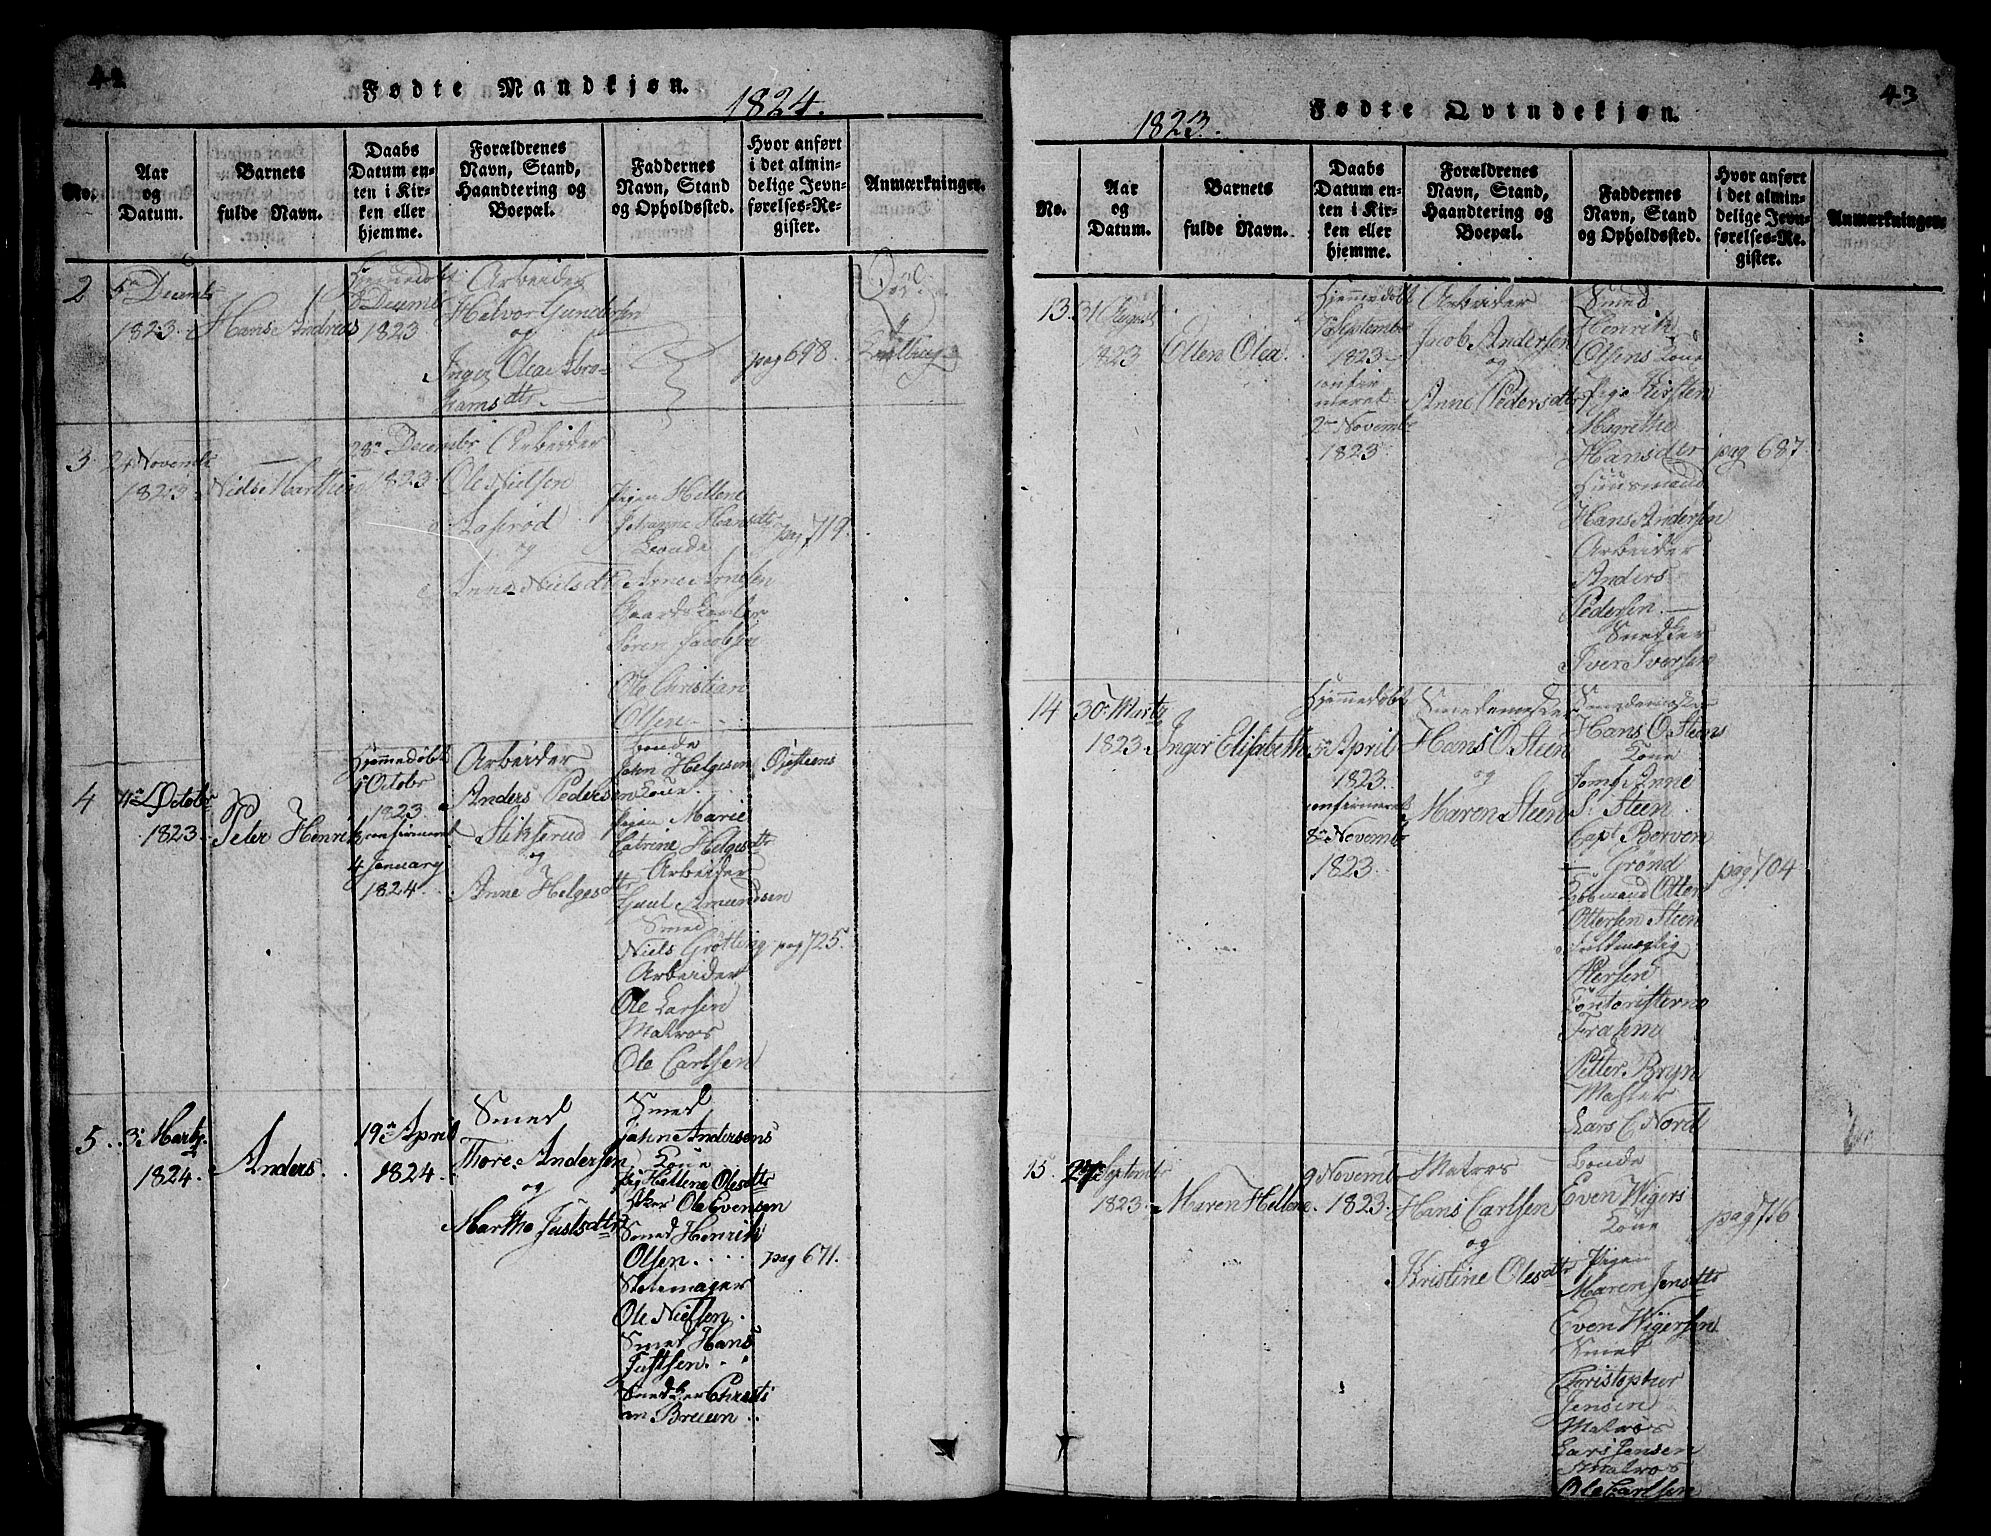 42
Fødte Mandkjøn.
1824.
No.
Aar
og
Datum.
Barnets
fulde Navn.
Daabs
Datum en-
ten i Kir-
ken eller
hjemme.
Forældrenes
Navn, Stand,
Haandtering og
Boepæl.
Faddernes
Navn, Stand
og Opholdssted.
Hvor anført
i det almin-
delige Jevn-
førelses-Re-
gister.
Anmærkninger.
2
5te Decembr
1823.
Hans Andreas
Hjemmedøbt
Decembr
1823
Arbeider
Halvor Gundersen
og
Inger Olea Abra-
hamsdtr.
pag 698.
3
24 Novembr
1823
Niels Marthin
28de Decembr
1823
Arbeider
Ole Nielsen
og
Anne Nielsdtr
Pigen Hellene
Johanne Hansdtr
Bonde
Arne Arnesen
Søren Jacobsen
Ole Christian
Olsen
pag 719.
4
Octobr
1823.
Peter Henrik
Hjemmedøbt
Octobr
1823.
confirmeret
4 January
1824.
Arbeider
Anders Pedersen
Stikserud
og
Anne Helgesdtr
Bonde
John Helgesen
Kone
Pigen Marie
Catrine Helgesdtr
Arbeider
Gaul Amundsen
Smed
Niels Grøtting
Arbeider
Ole Larsen
Matros
Ole Carlsen
pag 725.
5
3die Martz
1824.
Anders.
19de April
1824.
Smed
Thore Andersen
og
Marthe Justsdtr
Smed
John Andersens
Kone
Pig Hellene Olesdtr
Ole Evensen
Smed Henrik
Olsen.
Ole Nielsen.
Smed Hans
Justsen.
Snedker Christi
an Breuen.
pag 671.
43
Fødte Qvindekjøn.
1823.
No.
Aar
og
Datum.
Barnets
fulde Navn.
Daabs
Datum en-
ten i Kir-
ken eller
hjemme.
Forældrenes
Navn, Stand,
Haandtering og
Boepæl.
Faddernes
Navn, Stand
og Opholdssted.
Hvor anført
i det almin-
delige Jevn-
førelses-Re-
gister.
Anmærkninger.
13.
31 August
1823
Ellen Olea.
Hjemmedøbt
September
1823
confir
meret
2den Novembr
1823
Arbeider
Jacob Andersen
og
Anne Pedersdtr
Smed
Henrik
Olsens Kone
Pige Kirsten
Marethe
Hansdtr
Huusmand
Hans Andersen
Arbeider
Anders
Pedersen.
Snedker
Iver Iversen
pag 687.
14
30te Martz
1823
Inger Elisabeth
Hjemmedøbt
5te April
1823.
confirmeret
8de Novembr
1823.
Smedemester
Hans O Steen
og
Maren Steen
Smedemester
Hans O. Steens
Kone
Jomf Anne
S. Steen
Capt Borven
Grønd
Kjøbmand Otter
Ottersen Steen
Fuldmægtig
Petersen
Contoristerne
Frahm
Petter Bryn
Master
Lars C Nord
pag 704
15.
Septembr
1823
Maren Hellene.
9 Novemb
1823.
Matros
Hans Carlsen
og
Kristine Olesdtr
Bonde
Even Wigers
Kone
Pigen
Maren Jensdtr
Even Wigersen
Smed
Christopher
Jensen
Matros
Lars Jensen
Matros
Ole Carlsen
pag 716